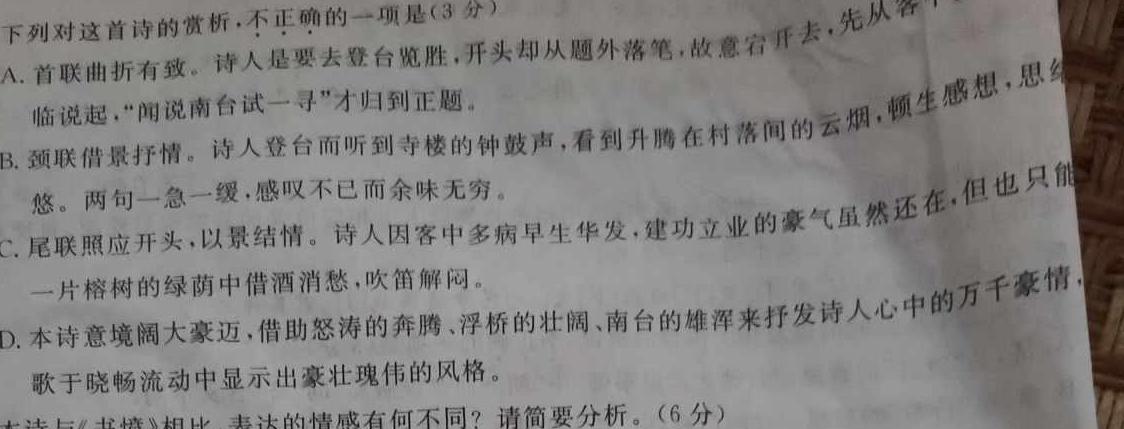 下列对这首诗的赏析,不正确的一项是(3分)
A. 首联曲折有致。诗人是要去登台览胜,开头却从题外落笔,故意宕开去,先从客
临说起,“闻说南台试一寻”才归到正题。
B. 颈联借景抒情。诗人登台而听到寺楼的钟鼓声,看到升腾在村落间的云烟,顿生感想,思
悠。两句一急一缓,感叹不已而余味无穷。
C. 尾联照应开头,以景结情。诗人因客中多病早生华发,建功立业的豪气虽然还在,但也只能
一片榕树的绿荫中借酒消愁,吹笛解闷。
D. 本诗意境阔大豪迈,借助怒涛的奔腾、浮桥的壮阔、南台的雄浑来抒发诗人心中的万千豪情,
歌于晓畅流动中显示出豪壮瑰伟的风格。
本诗与《书愤》相比,表达的情感有何不同?请简要分析。(6分)